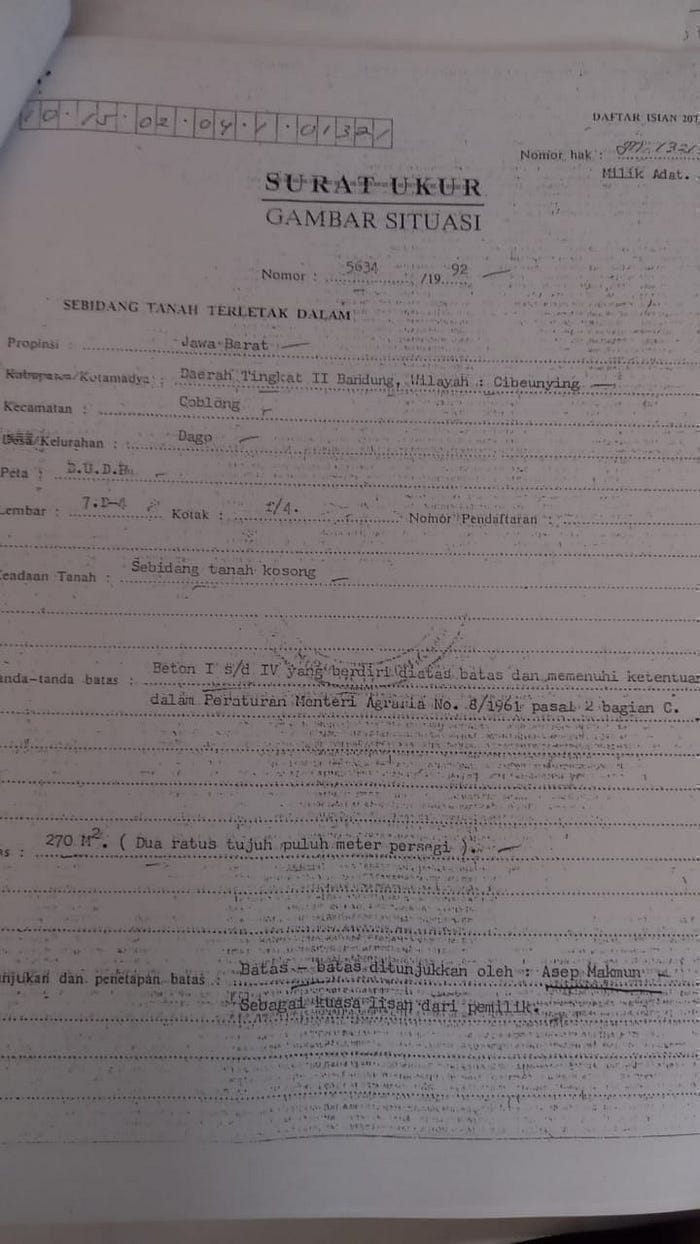 10.15.02.04.1.01321
DAFTAR ISIAN 207
Nomor hak :
Milik Adat.
SURAT UKUR
GAMBAR SITUASI
Nomor : 5634 /19 92
SEBIDANG TANAH TERLETAK DALAM
Propinsi : Jawa Barat
Kabupaten/Kotamadya : Daerah Tingkat II Bandung, Wilayah : Cibeunying
Kecamatan : Coblong
Desa/Kelurahan : Dago
Peta :
Lembar : Kotak : Nomor Pendaftaran :
Keadaan Tanah : Sebidang tanah kosong
anda-tanda batas : Beton I s/d IV yang berdiri diatas batas dan memenuhi ketentuan
dalam Peraturan Menteri Agraria No. 8/1961 pasal 2 bagian C.
as : 270 M². ( Dua ratus tujuh puluh meter persegi ).
unjukan dan penetapan batas : Batas - batas ditunjukkan oleh : Asep Makmun
Sebagai kuasa lisan dari pemilik.